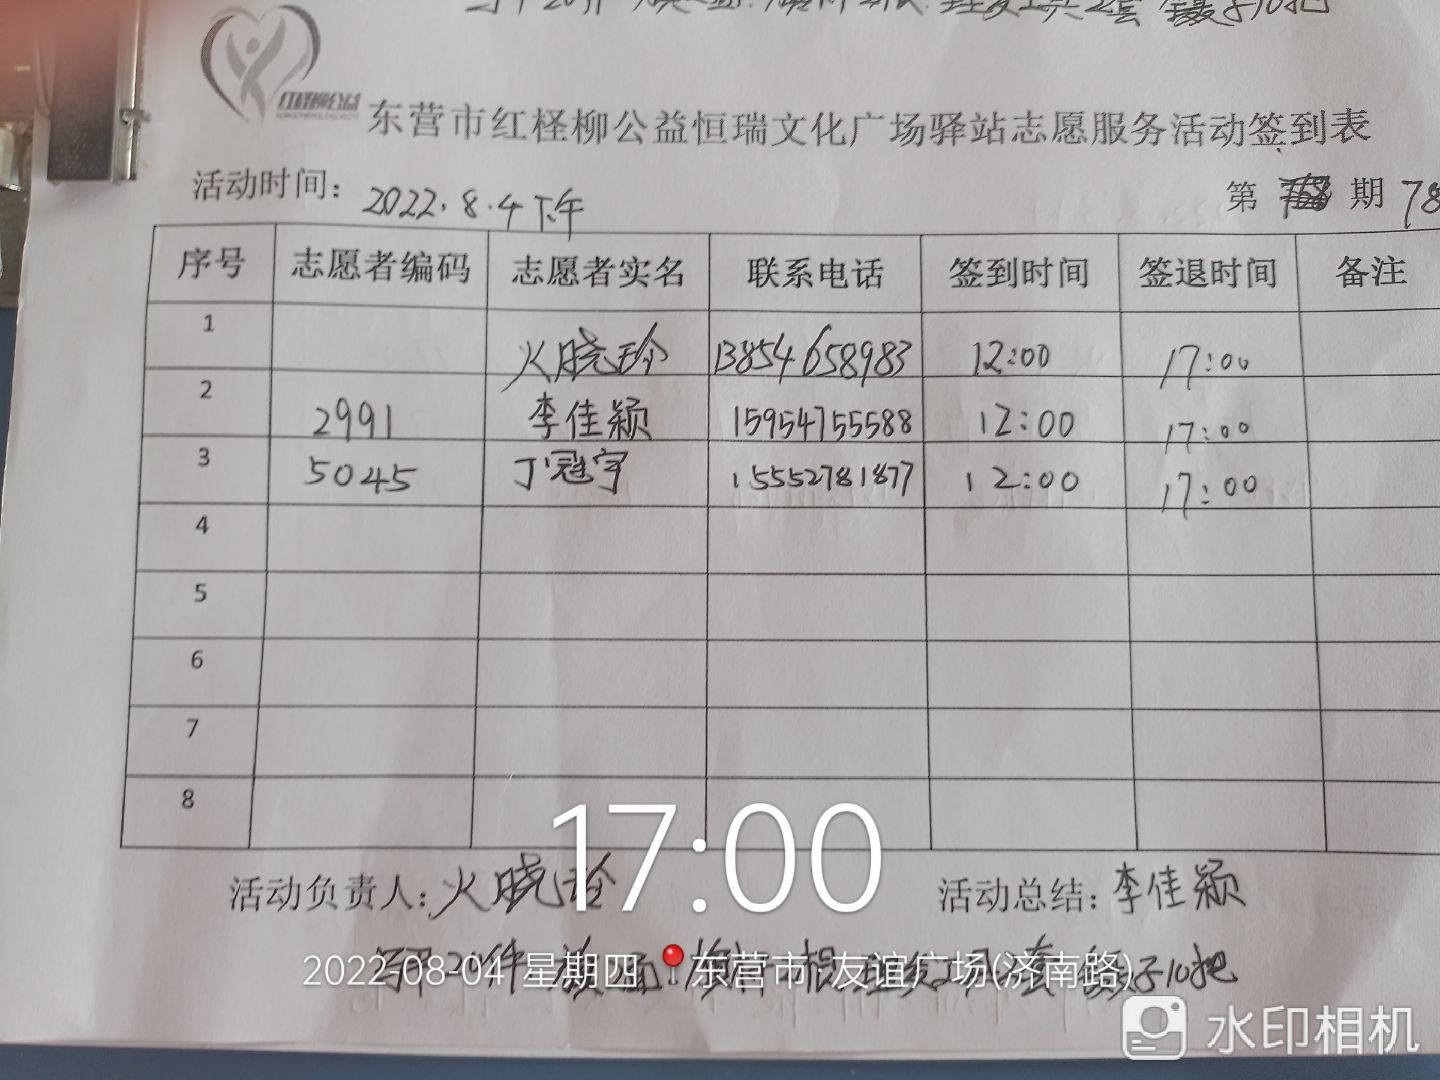 理发工具2套 10把
红柽柳公益
东营市红柽柳公益恒瑞文化广场驿站志愿服务活动签到表
活动时间：2022.8.4下午 第 期 78
序号 志愿者编码 志愿者实名 联系电话 签到时间 签退时间 备注
1 火晓玲 13854658983 12:00 17:00
2 2991 李佳颖 15954755588 12:00 17:00
3 5045 丁冠宇 15552781877 12:00 17:00
4
5
6
7
8
17:00
活动负责人：火晓玲 活动总结：李佳颖
2022-08-04 星期四 东营市·友谊广场(济南路)
子10把
水印相机